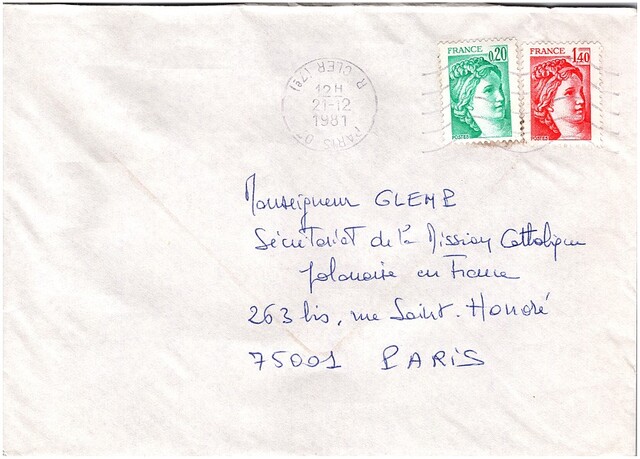 FRANCE 0,20
FRANCE 1,40
POSTES
POSTES
R. CLER (7e)
12 H
21-12
1981
PARIS 07
Monseigneur GLEMP
Sécrétariat de la Mission Catholique
polonaise en France
263 bis, rue Saint-Honoré
75001 PARIS